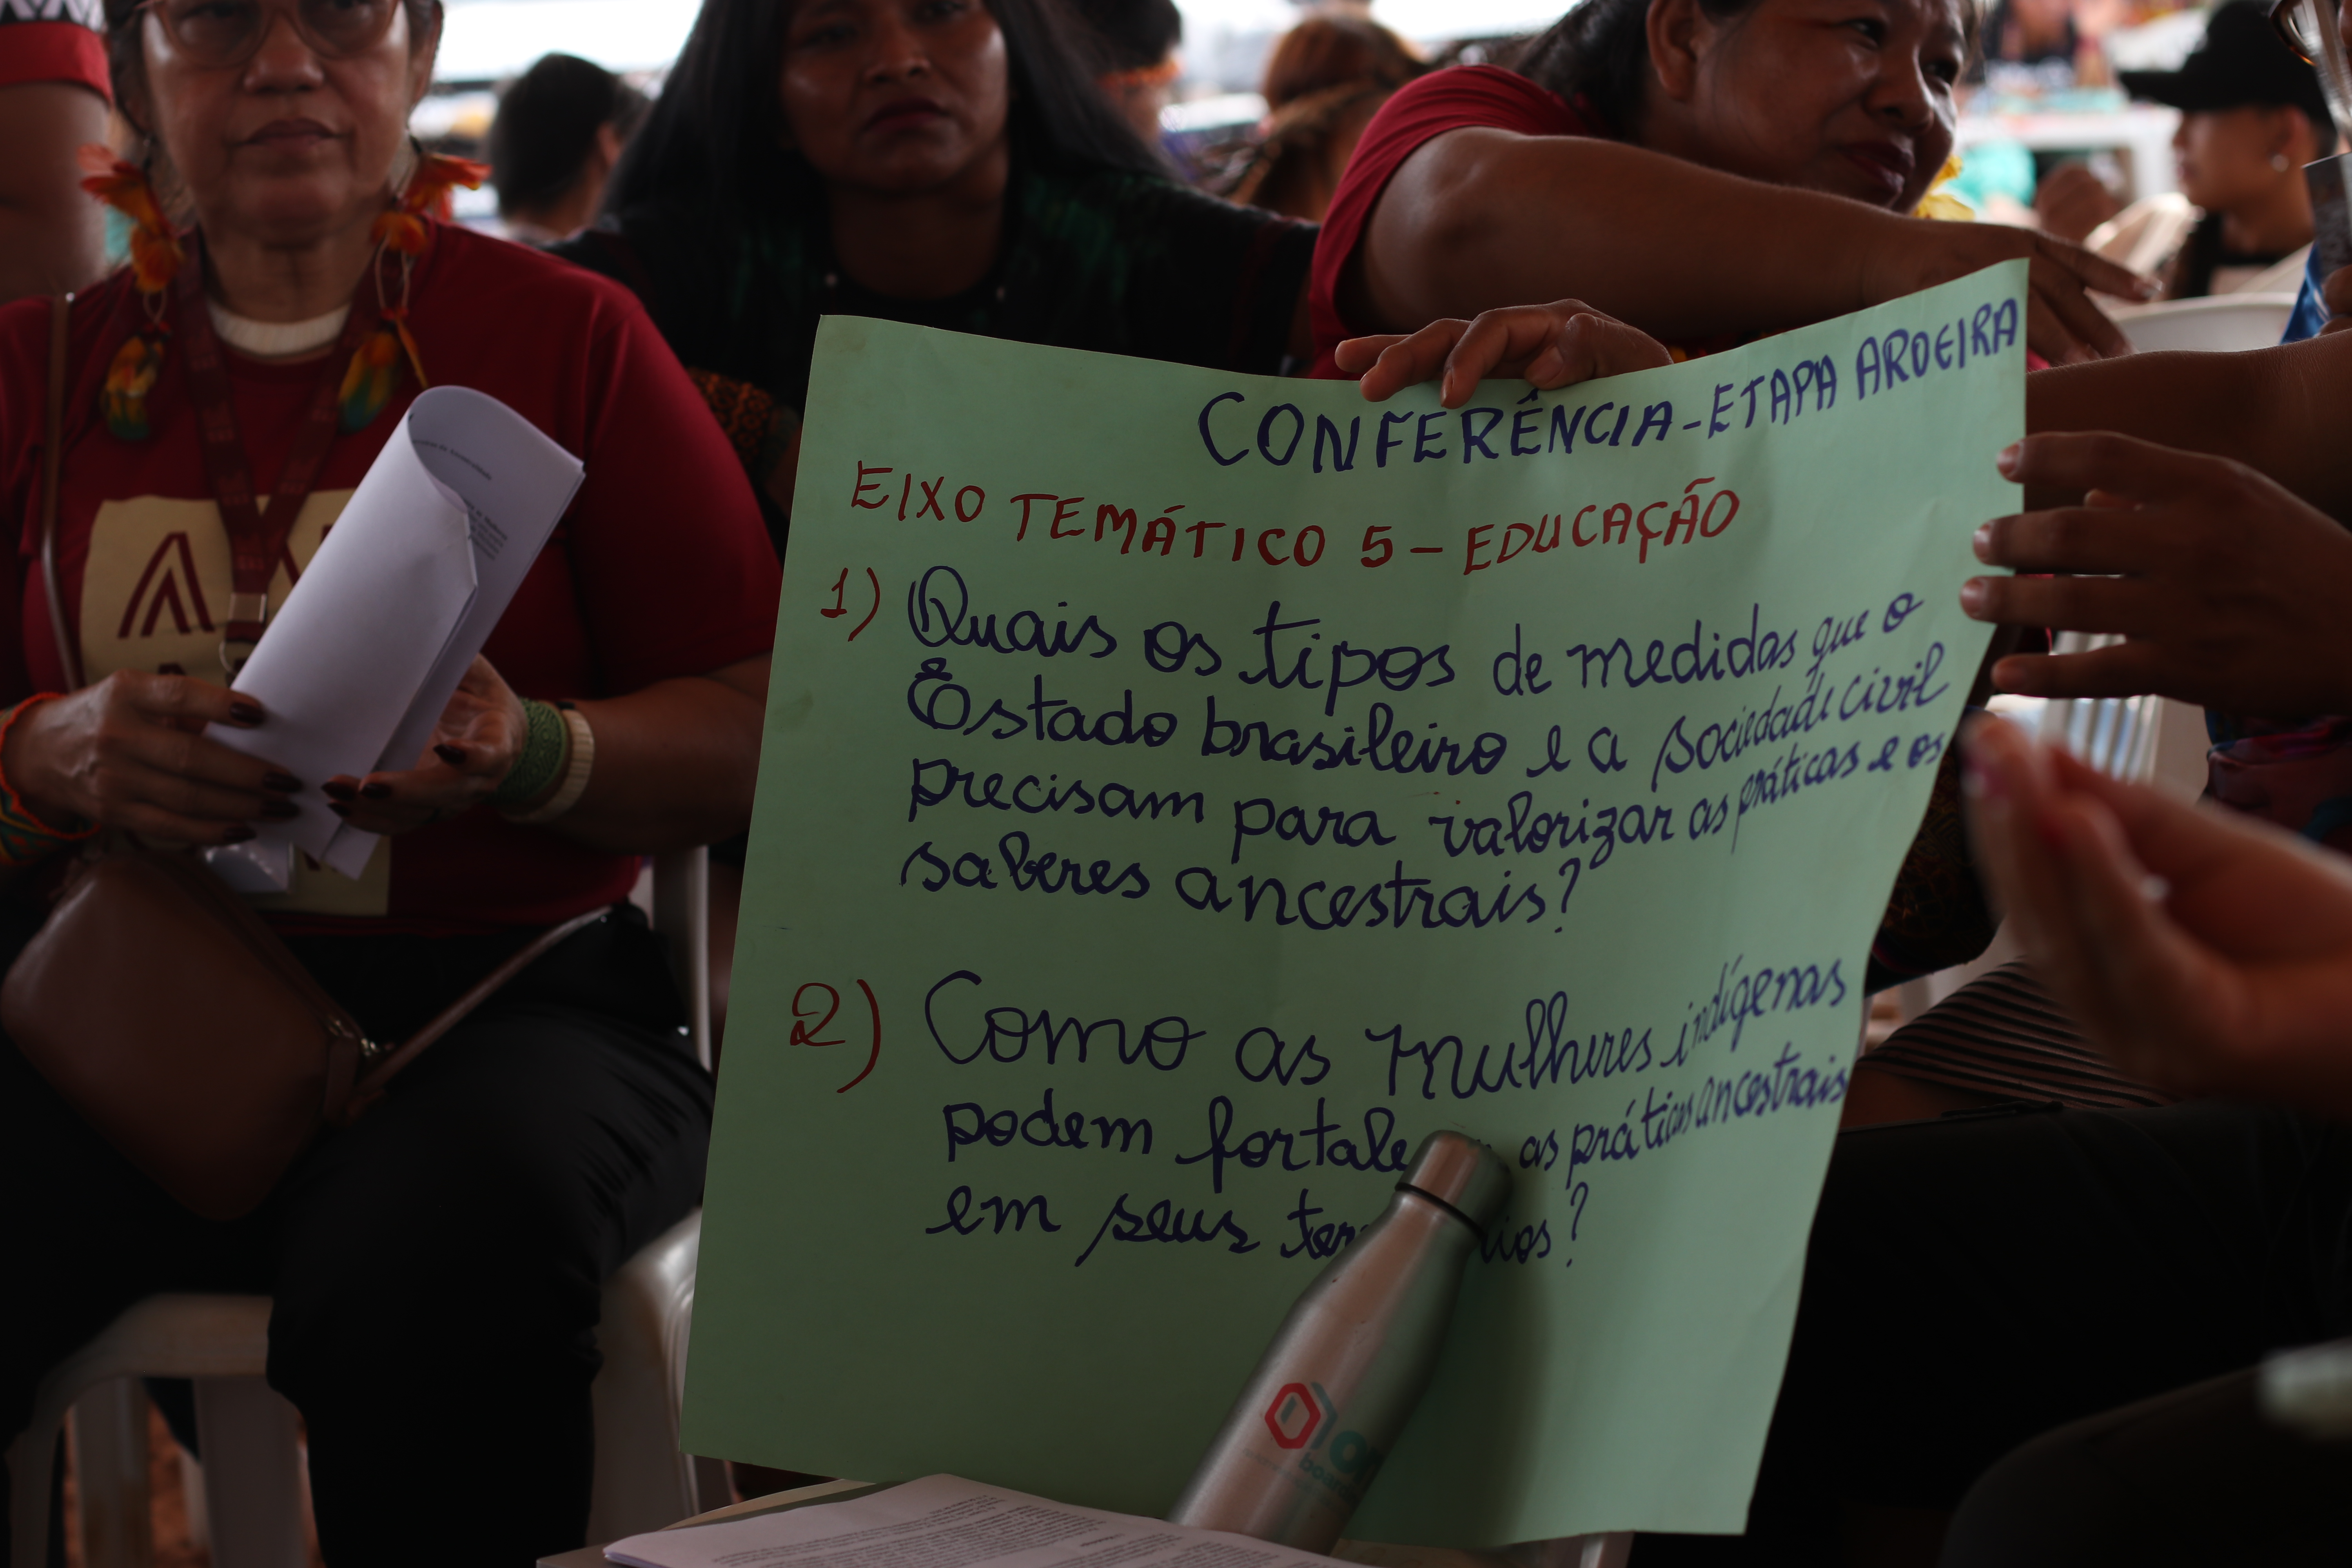 CONFERÊNCIA - ETAPA AROEIRA
EIXO TEMÁTICO 5 - EDUCAÇÃO
1) Quais os tipos de medidas que o
Estado brasileiro e a sociedade civil
precisam para valorizar as práticas e os
saberes ancestrais?
2) Como as mulheres indígenas
podem fortale as práticas ancestrais
em seus ter ios?
on
board